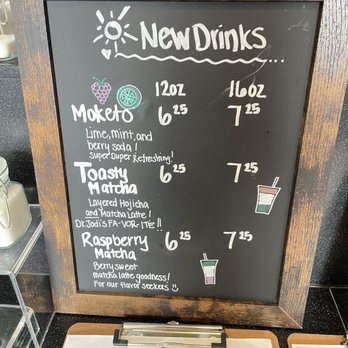 New Drinks
12oz 16oz
Moketo 6.25 7.25
Lime, mint, and
berry soda!
Super Duper Refreshing!
Toasty 6.25 7.25
Matcha
Layered Hojicha
and Matcha Latte!
Dr. Jodi's FA-VOR-ITE!!
Raspberry 6.25 7.25
Matcha
Berry sweet
matcha latte goodness!
For our flavor seekers